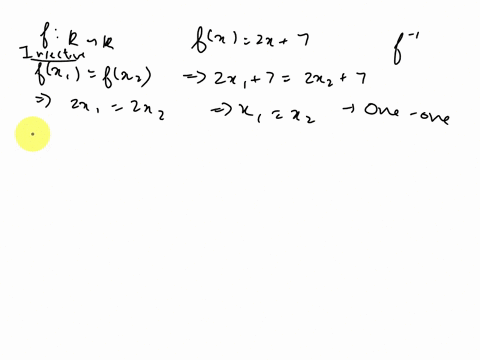 f: R → R f(x) = 2x + 7 f⁻¹
Injective
f(x₁) = f(x₂) ⇒ 2x₁ + 7 = 2x₂ + 7
⇒ 2x₁ = 2x₂ ⇒ x₁ = x₂ → One-one